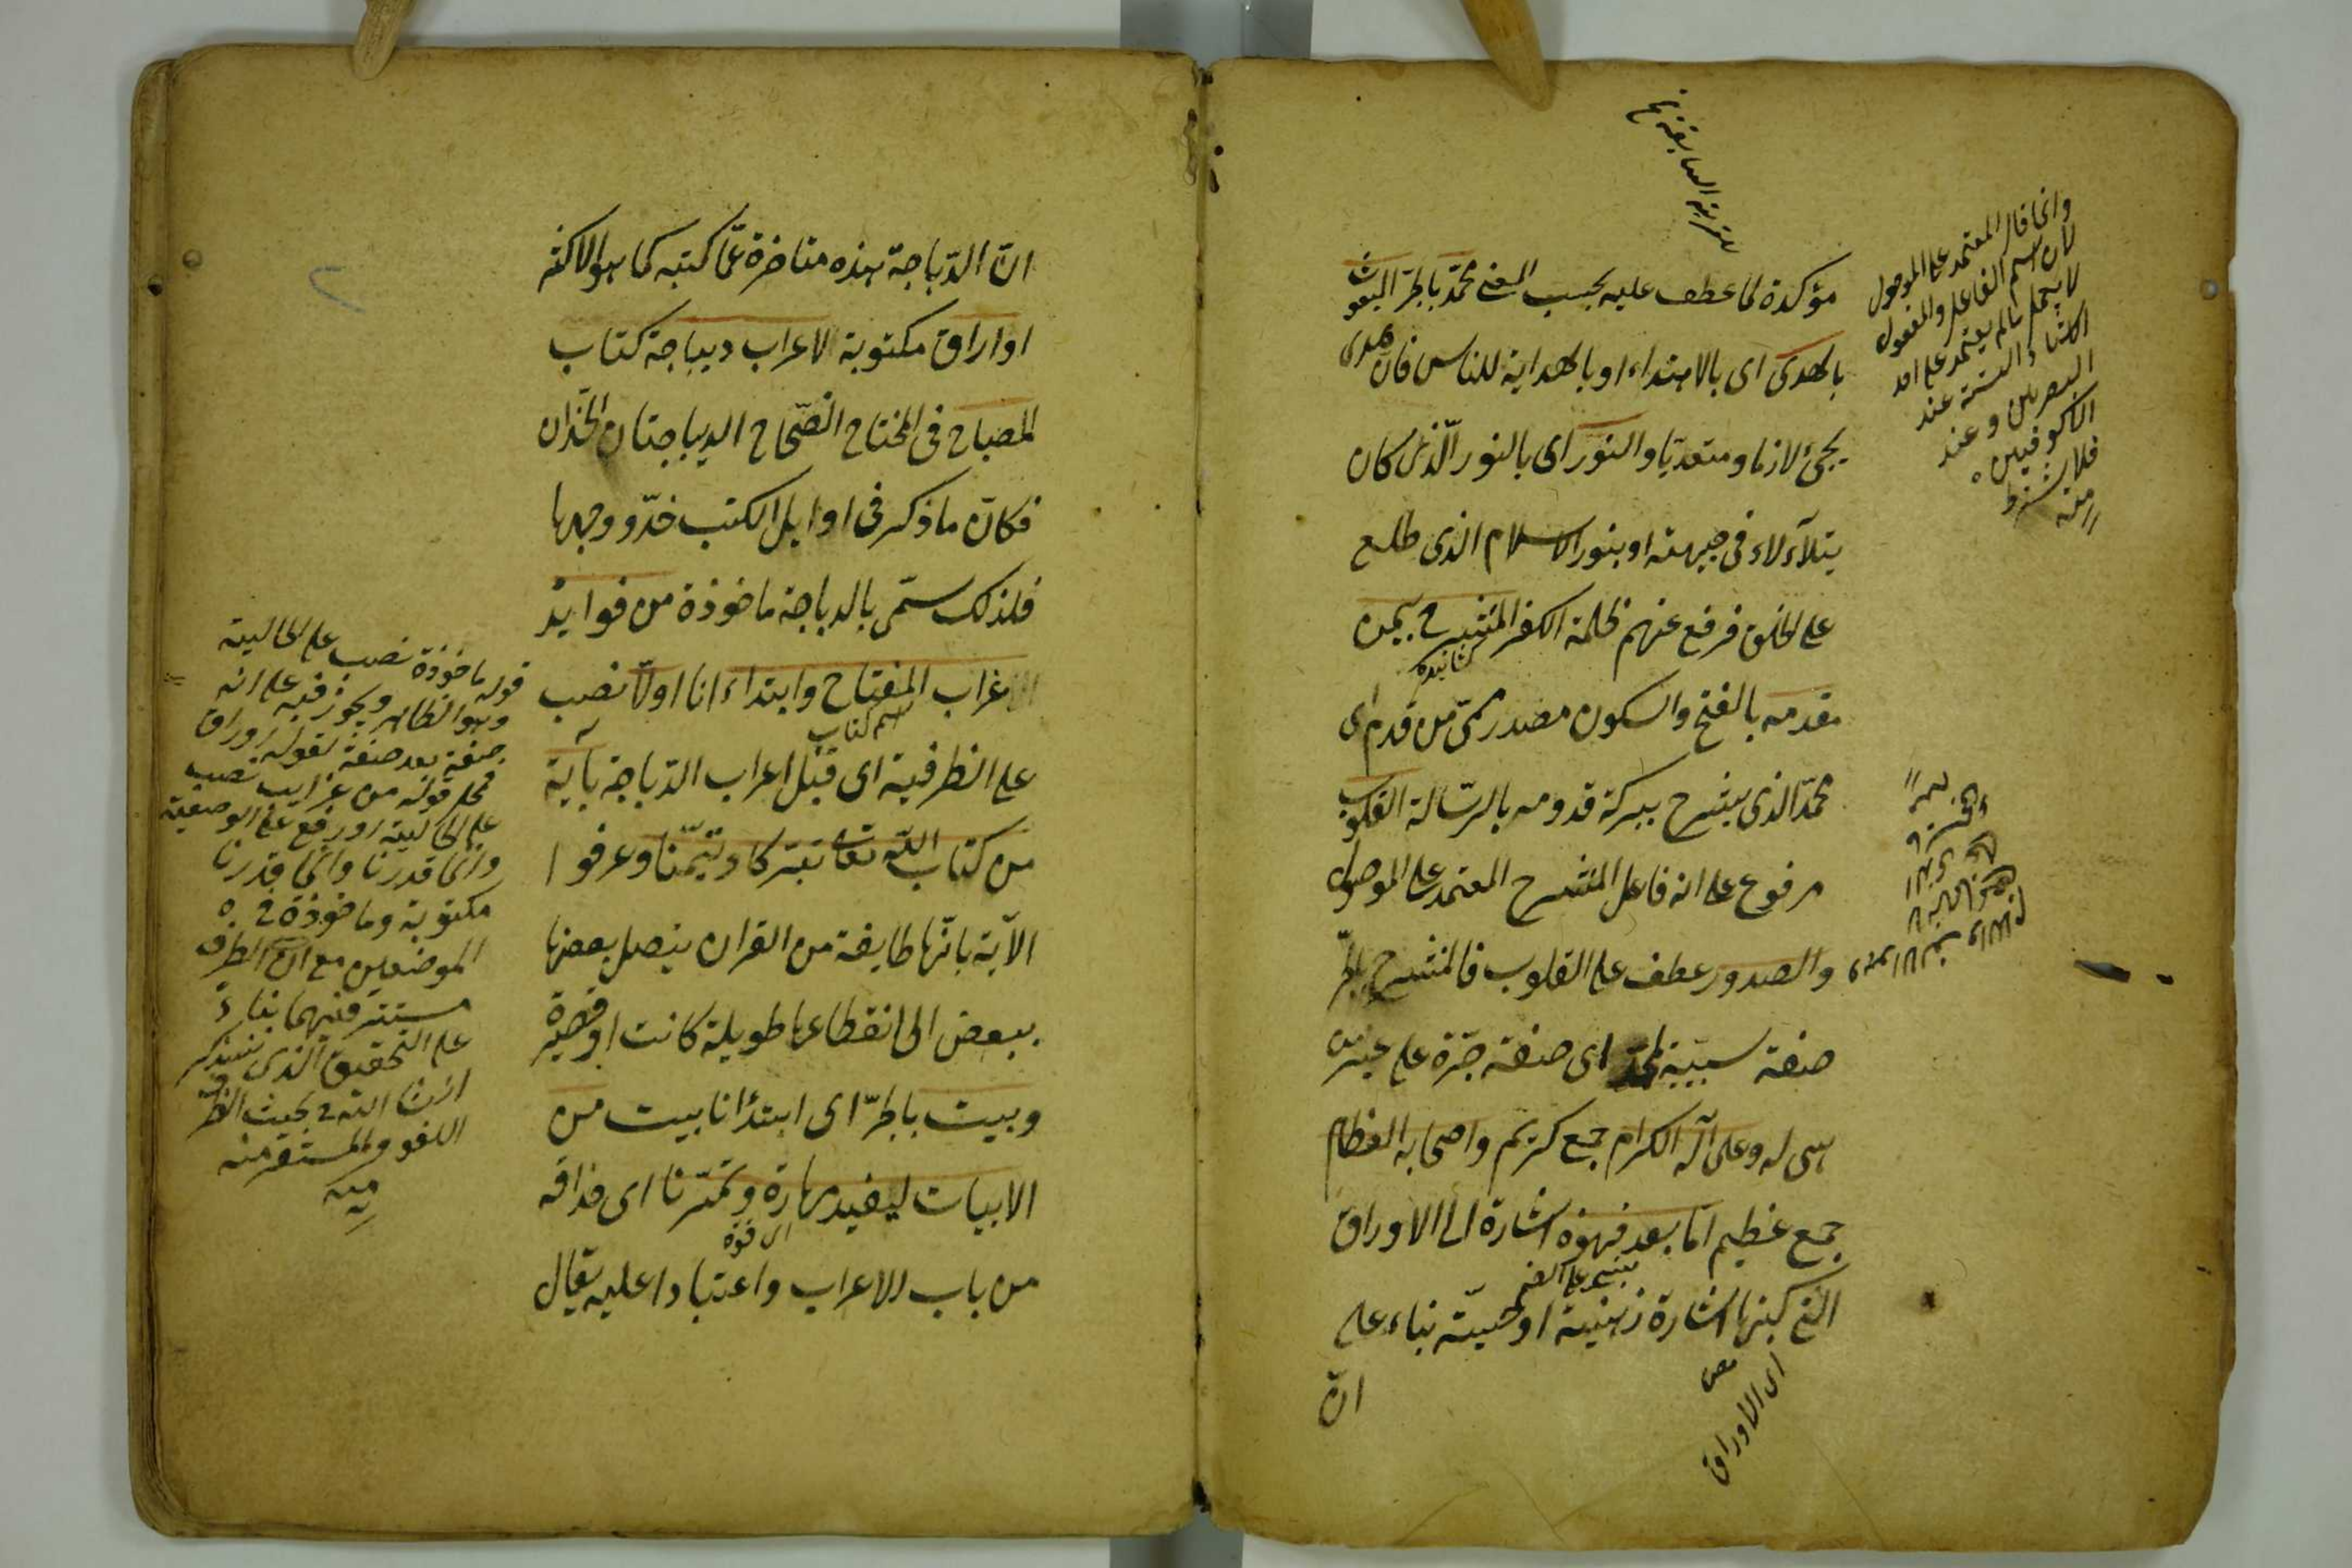 مؤكدة لما عطف عليه بحسب المعنى محمد بالجر المبعوث
بالهدى اى بالاهتداء او بالهداية للناس فان هدى
يجئ لازما ومتعديا والنور اى بالنور الذى كان
يتلآء لاء فى جبهته او بنور الاسلام الذى طلع
على الخلق فرفع عنهم ظلمة الكفر المنشرح بيمن
مقدمه بالفتح والسكون مصدر ميمى من قدم اى
محمد الذى ينشرح ببركة قدومه بالرسالة القلوب
مرفوع على انه فاعل المنشرح المعتمد على الموصول
والصدور عطف على القلوب فالمنشرح بالجر
صفة سببية لمحمد اى صفة جرت على غير من
هى له وعلى آله الكرام جمع كريم واصحابه العظام
جمع عظيم اما بعد فهذه اشارة الى الاوراق
التى كتبها اشارة ذهنية او حسية بناء على
ان
اى الاوراق
وانما قال المعتمد على الموصول
لان اسم الفاعل والمفعول
لا يعمل ما لم يعتمد على احد
الاشياء الستة عند
البصريين وعند
الكوفيين
فلا يشترط
منه
ان الديباجة هذه متاخرة عما كتبه كما هو الاكثر
او اوراق مكتوبة لاعراب ديباجة كتاب
المصباح فى المختار الصحاح الديباجتان الخدان
فكان ما ذكر فى اوايل الكتب خد ووجهها
فلذلك سمى بالديباجة ماخوذة من فوايد
الاعراب المفتاح وابتداءنا اولا نصب
على الظرفية اى قبل اعراب الديباجة بآية
من كتاب الله تعالى تبركا وتيمنا وعرفوا
الآية بانها طايفة من القران يتصل بعضها
ببعض الى انقطاعها طويلة كانت او قصيرة
وبيت بالجر اى ابتدأنا ببيت من
الابيات ليفيد مهارة وتمرنا اى حذاقة
من باب الاعراب واعتيادا عليه يقال
اسم كتاب
اى قوة
قوله ماخوذة نصب على الحالية
وهو الظاهر ويجوز رفعه على انه
صفة بعد صفة لقوله اوراق
محل قوله من غرايب نصب
على الحالية او رفع على الوصفية
وانما قدرنا وانما قدرنا
مكتوبة وماخوذة فى
الموضعين مع ان الظرف
مستتر فيهما بناء
على التحقيق الذى سنذكر
ان شاء الله فى بحث الظرف
اللغو والمستقر منه
منه